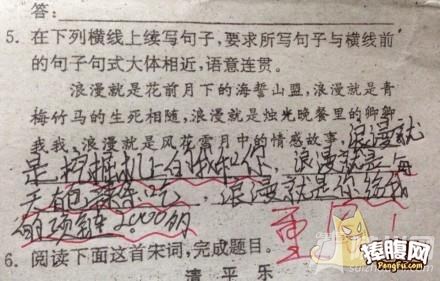 答:
5. 在下列横线上续写句子,要求所写句子与横线前
的句子句式大体相近,语意连贯。
浪漫就是花前月下的海誓山盟,浪漫就是青
梅竹马的生死相随,浪漫就是烛光晚餐里的卿卿
我我,浪漫就是风花雪月中的情感故事,浪漫就
是,挖掘机上的我和你,浪漫就是每
天有包辣条吃,浪漫就是你给我
的项链2000多
重写!
6. 阅读下面这首宋词,完成题目。
清平乐
捧腹网
PengFu.com